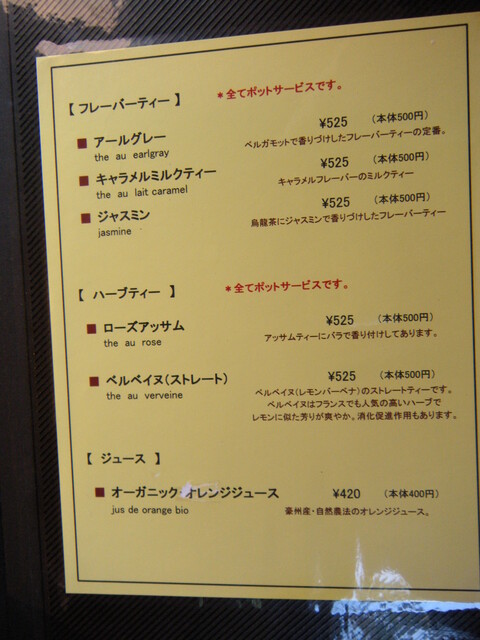 【 フレーバーティー 】 ＊全てポットサービスです。
■ アールグレー ¥525 （本体500円）
the au earlgray ベルガモットで香りづけしたフレーバーティーの定番。
■ キャラメルミルクティー ¥525 （本体500円）
the au lait caramel キャラメルフレーバーのミルクティー
■ ジャスミン ¥525 （本体500円）
jasmine 烏龍茶にジャスミンで香りづけしたフレーバーティー
【 ハーブティー 】 ＊全てポットサービスです。
■ ローズアッサム ¥525 （本体500円）
the au rose アッサムティーにバラで香り付けしてあります。
■ ベルベイヌ（ストレート） ¥525 （本体500円）
the au verveine ベルベイヌ（レモンバーベナ）のストレートティーです。
ベルベイヌはフランスでも人気の高いハーブで
レモンに似た芳りが爽やか。消化促進作用もあります。
【 ジュース 】
■ オーガニック オレンジジュース ¥420 （本体400円）
jus de orange bio 豪州産・自然農法のオレンジジュース。